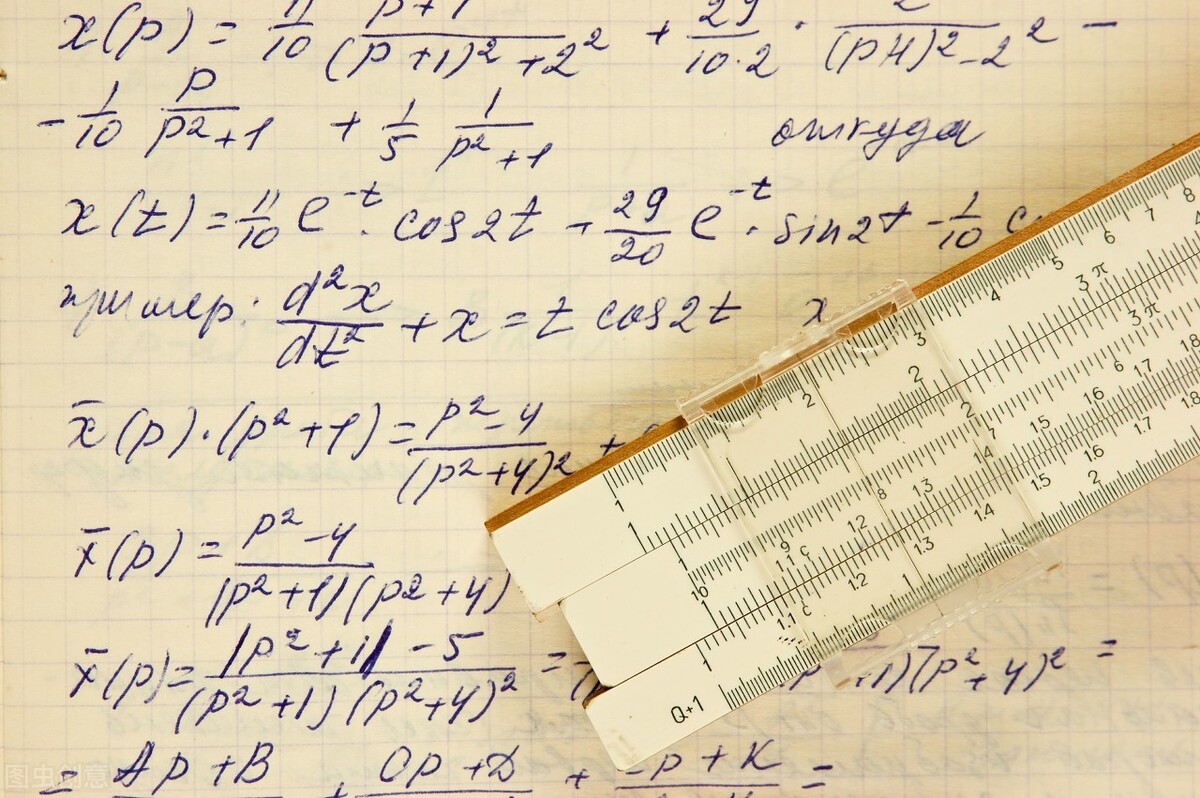 x(p) = 11/10 (p+1)/((p+1)²+2²) + 29/(10·2) · 2/((p+1)²-2²) -
- 1/10 p/(p²+1) + 1/5 1/(p²+1) откуда
x(t) = 11/10 e^(-t) · cos2t + 29/20 e^(-t) · sin2t - 1/10 c
пример: d²x/dt² + x = t cos2t x
x̄(p)·(p²+1) = (p²-4)/(p²+4)² +
x̄(p) = (p²-4)/((p²+1)(p²+4)
x̄(p) = ((p²+1)-5)/((p²+1)(p²+4)²) = +1)(p²+4)² =
= Ap+B + Cp+D + p+K =
1 2 3 4 5 6 7 8
1 2 3 π
2 3 π
10 9 8 7 6
1 1.1 c 1.2 1.3 14 15 16 1.7 1.8
1.1 c 1.2 1.3 1.4 1.5 1.6 1.7 1.8
Q+1 1 2
图虫创意